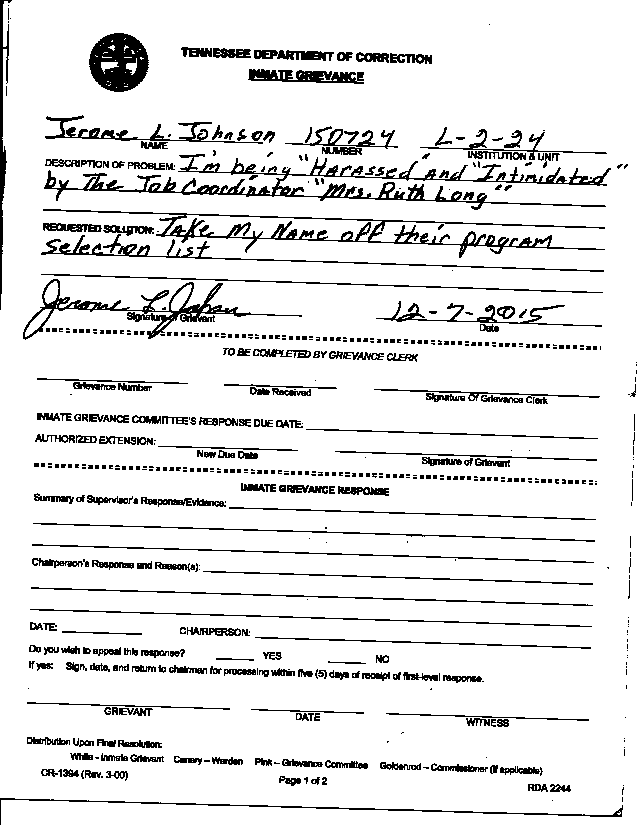 TENNESSEE DEPARTMENT OF CORRECTION
INMATE GRIEVANCE
Jerome L. Johnson 150724 L-2-24
NAME NUMBER INSTITUTION & UNIT
DESCRIPTION OF PROBLEM: I'm being "Harassed" And "Intimidated"
by The Job Coordinator "Mrs. Ruth Long"
REQUESTED SOLUTION: Take My Name off their program
selection list
Jerome L. Johnson 12-7-2015
Signature of Grievant Date
TO BE COMPLETED BY GRIEVANCE CLERK
Grievance Number Date Received Signature Of Grievance Clerk
INMATE GRIEVANCE COMMITTEE'S RESPONSE DUE DATE:
AUTHORIZED EXTENSION:
New Due Date Signature of Grievant
INMATE GRIEVANCE RESPONSE
Summary of Supervisor's Response/Evidence:
Chairperson's Response and Reason(s):
DATE: CHAIRPERSON:
Do you wish to appeal this response? YES NO
If yes: Sign, date, and return to chairman for processing within five (5) days of receipt of first-level response.
GRIEVANT DATE WITNESS
Distribution Upon Final Resolution:
White - Inmate Grievant Canary – Warden Pink – Grievance Committee Goldenrod – Commissioner (if applicable)
CR-1394 (Rev. 3-00) Page 1 of 2 RDA 2244